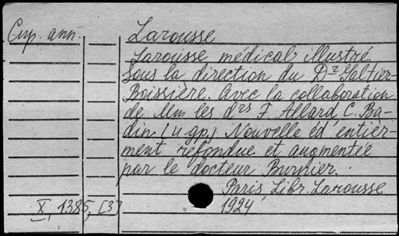 Cup. ann.
Larousse
Larousse médical illustré
sous la direction du Dr Galtier-
Boissière. Avec la collaboration
de Mm les drs F. Allard C. Ba-
din (u. gp.) Nouvelle éd entièr-
ment refondue et augmentée
par le docteur Burnier.
Paris, Libr. Larousse
X, 1385, [3] 1924